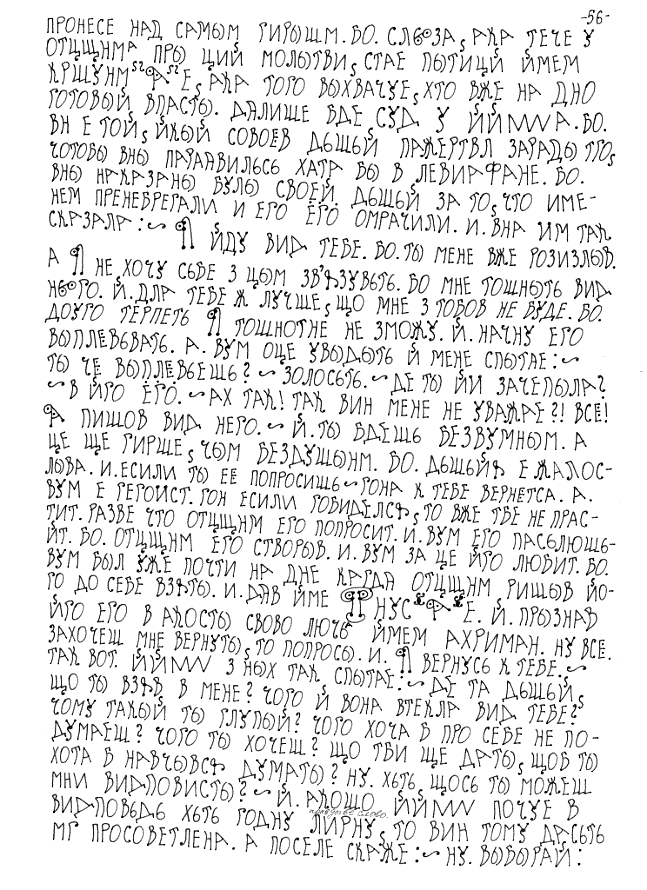 -56-
ПРОНЕСЕ НАД САМЫМ ГИРЫШМ. БО. СЛЮЗА, АКА ТЕЧЕ У
ПРЫ ЦИЙ МОЛЫТВИ, СТАЕ ПЫТИЦИЙ ЙМЕМ
АКА ТОГО ВЫХВАЧУЕ, ХТО ВЖЕ НА ДНО
ГОТОВЫЙ ВПАСТЫ. ДАЛИШЕ БДЕ СУД У А. БО.
ВН Е ТОЙ, ЙКЫЙ СОВОЕВ ДЫШЫЙ ПАЖЕРТВЛ ЗАРАДЫ ТГО,
ЧОТОБЫ ВНЫ ХАТА БЫ В ЛЕВИАФАНЕ. БО.
ВНЫ НАКАЗАНЫ БУЛЫ СВОЕЙ ДЫШЫЙ ЗА ТО, ЧТО ИМЕ-
НЕМ ПРЕНЕБРЕГАЛИ И ЕГО ЕГО ОМРАЧИЛИ. И. ВНА ИМ ТАК
СКАЗАЛА :~ Я ЙДУ ВИД ТЕБЕ. БО. ТЫ МЕНЕ ВЖЕ РОЗИЗЛЫВ.
А Я НЕ ХОЧУ СЬБЕ З ЦЫМ ЗВЯЗУВЬТЬ. БО МНЕ ТОШНЫТЬ ВИД
НЮГО. Й. ДЛА ТЕБЕ Ж ЛУЧШЕ, ЩО МНЕ З ТОБОВ НЕ БУДЕ. БО.
ДОУГО ТЕРПЕТЬ Я ТОШНОТНЕ НЕ ЗМОЖУ. Й. НАЧНУ ЕГО
ВЫПЛЕВЬВАТЬ. А. ВУМ ОЦЕ УВЫДЫТЬ Й МЕНЕ СПЫТАЕ :~
ТЫ ЧЕ ВЫПЛЕВЬЕШЬ? ~ ЗОЛОСЬТЬ. ~ ДЕ ТЫ ЙИ ЗАЧЕПЫЛА?
~ В ЙГО ЕГО. ~ АХ ТАК! ТАК ВИН МЕНЕ НЕ УВАЖАЕ?! ВСЕ!
Я ПИШОВ ВИД НЕГО. ~ Й. ТЫ БДЕШЬ БЕЗВУМНЫМ. А
ЦЕ ЩЕ ГИРШЕ, ЧЫМ БЕЗДУШЫНМ. БО. ДЫШЫЙЯ Е ЖАЛОС-
ЛЫВА. И. ЕСИЛИ ТЫ ЕЕ ПОПРОСИШЬ ~ ГОНА К ТЕБЕ ВЕРНЕТСА. А.
ВУМ Е ГЕГОИСТ. ГОН ЕСИЛИ ГОБИДЕЛСЯ, ТО ВЖЕ ТБЕ НЕ ПРАС-
ТИТ. РАЗВЕ ЧТО ОТЦЩНМ ЕГО ПОПРОСИТ. И. ВУМ ЕГО ПАСЬЛЮШЬ-
ЙТ. БО. ОТЦЩНМ ЕГО СТВОРЫВ. И. ВУМ ЗА ЦЕ ЙГО ЛЮБИТ. БО.
ВУМ БЫЛ УЖЕ ПОЧТИ НА ДНЕ КАГДА ОТЦЩНМ РИШЫВ ЙО-
ГО ДО СЕБЕ ВЗЯТЫ. И. ДАВ ИМЕ Й. ПРЫЗНАВ
ЙГО ЕГО В АКОСТЫ СВОВО ЛЮЧЬ ЙМЕМ АХРИМАН. НУ ВСЕ.
ЗАХОЧЕШ МНЕ ВЕРНУТЫ, ТО ПОПРОСЫ. И. Я ВЕРНУСЬ К ТЕБЕ. ~
ТАК ВОТ. З НЫХ ТАК СПЫТАЕ :~ ДЕ ТА ДЫШЫЙ,
ЩО ТЫ ВЗЯВ В МЕНЕ? ЧОГО Й ВОНА ВТЕКЛА ВИД ТЕБЕ?
ЧОМУ ТАКЫЙ ТЫ ГЛУПЫЙ? ЧОГО ХОЧА В ПРО СЕБЕ НЕ ПО-
ДУМАЕШ? ЧОГО ТЫ ХОЧЕШ? ЩО ТБИ ЩЕ ДАТЫ, ЩОБ ТЫ
ХОТА В НАВЧЫВСЯ ДУМАТЫ? НУ. ХЬТЬ ЩОСЬ ТЫ МОЖЕШ
МНИ ВИДПОВИСТЫ? ~ Й. АКОЩО ПОЧУЕ В
ВИДПОВЬДЬ ХЬТЬ ГОДНУ ЛИРНУ, ТО ВИН ТОМУ ДАСЬТЬ
МГ ПРОСОВЕТЛЕНА. А ПОСЕЛЕ СКАЖЕ :~ НУ. ВЫБЫРАЙ :